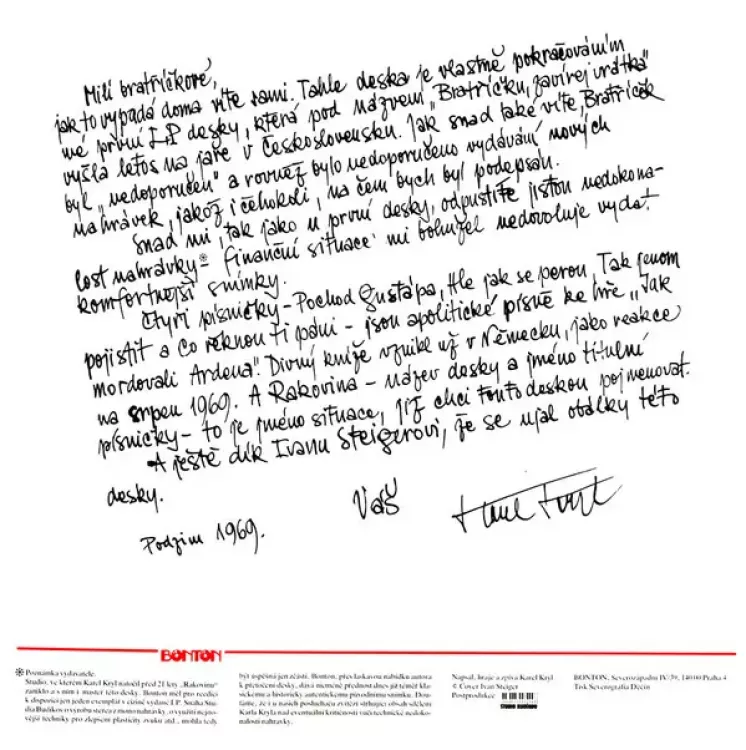 Milí bratříčkové,
jak to vypadá doma víte sami. Tahle deska je vlastně pokračováním
mé první LP desky, která pod názvem „Bratříčku, zavírej vrátka"
vyšla letos na jaře v Československu. Jak snad také víte, Bratříček
byl „nedoporučen" a rovněž bylo nedoporučeno vydávání nových
nahrávek, jakož i čehokoli, na čem bych byl podepsán.
Snad mi, tak jako u první desky, odpustíte jistou nedokona-
lost nahrávky* – finanční situace mi bohužel nedovoluje vydat
komfortnejší snímky.
Čtyři písničky – Pochod Gustápa, Hle jak se perou, Tak jenom
pojistit a Co řeknou ti páni – jsou apolitické písně ke hře „Jak
mordovali Ardena". Divný kníže vznikl už v Německu, jako reakce
na srpen 1969. A Rakovina – název desky a jméno titulní
písničky – to je jméno situace, jíž chci touto deskou pojmenovat.
A ještě dík Ivanu Steigerovi, že se ujal obálky této
desky.
Váš
Podzim 1969.
BONTON
* Poznámka vydavatele:
Studio, ve kterém Karel Kryl natočil před 21 lety „Rakovinu"
zaniklo a s ním i master této desky. Bonton měl pro reedici
k dispozici jen jeden exemplář s cizině vydané LP. Snaha Stu-
dia Budíkov o výrobu sterea z mono nahrávky, o využití nejno-
vější techniky pro zlepšení plasticity zvuku atd., mohla tedy
být úspěšná jen zčásti. Bonton, přes laskavou nabídku autora
k přetočení desky, dává nicméně přednost dnes již téměř kla-
sickému a historicky autentickému původnímu snímku. Dou-
fáme, že i u našich posluchačů zvítězí strhující obsah sdělení
Karla Kryla nad eventuelní komerčností vůči technické nedoko-
nalosti nahrávky.
Napsal, hraje a zpívá Karel Kryl
© Cover Ivan Steiger
Postprodukce
STUDIO BUDÍKOV
BONTON, Severozápadní IV/39, 140 00 Praha 4
Tisk Severografia Děčín